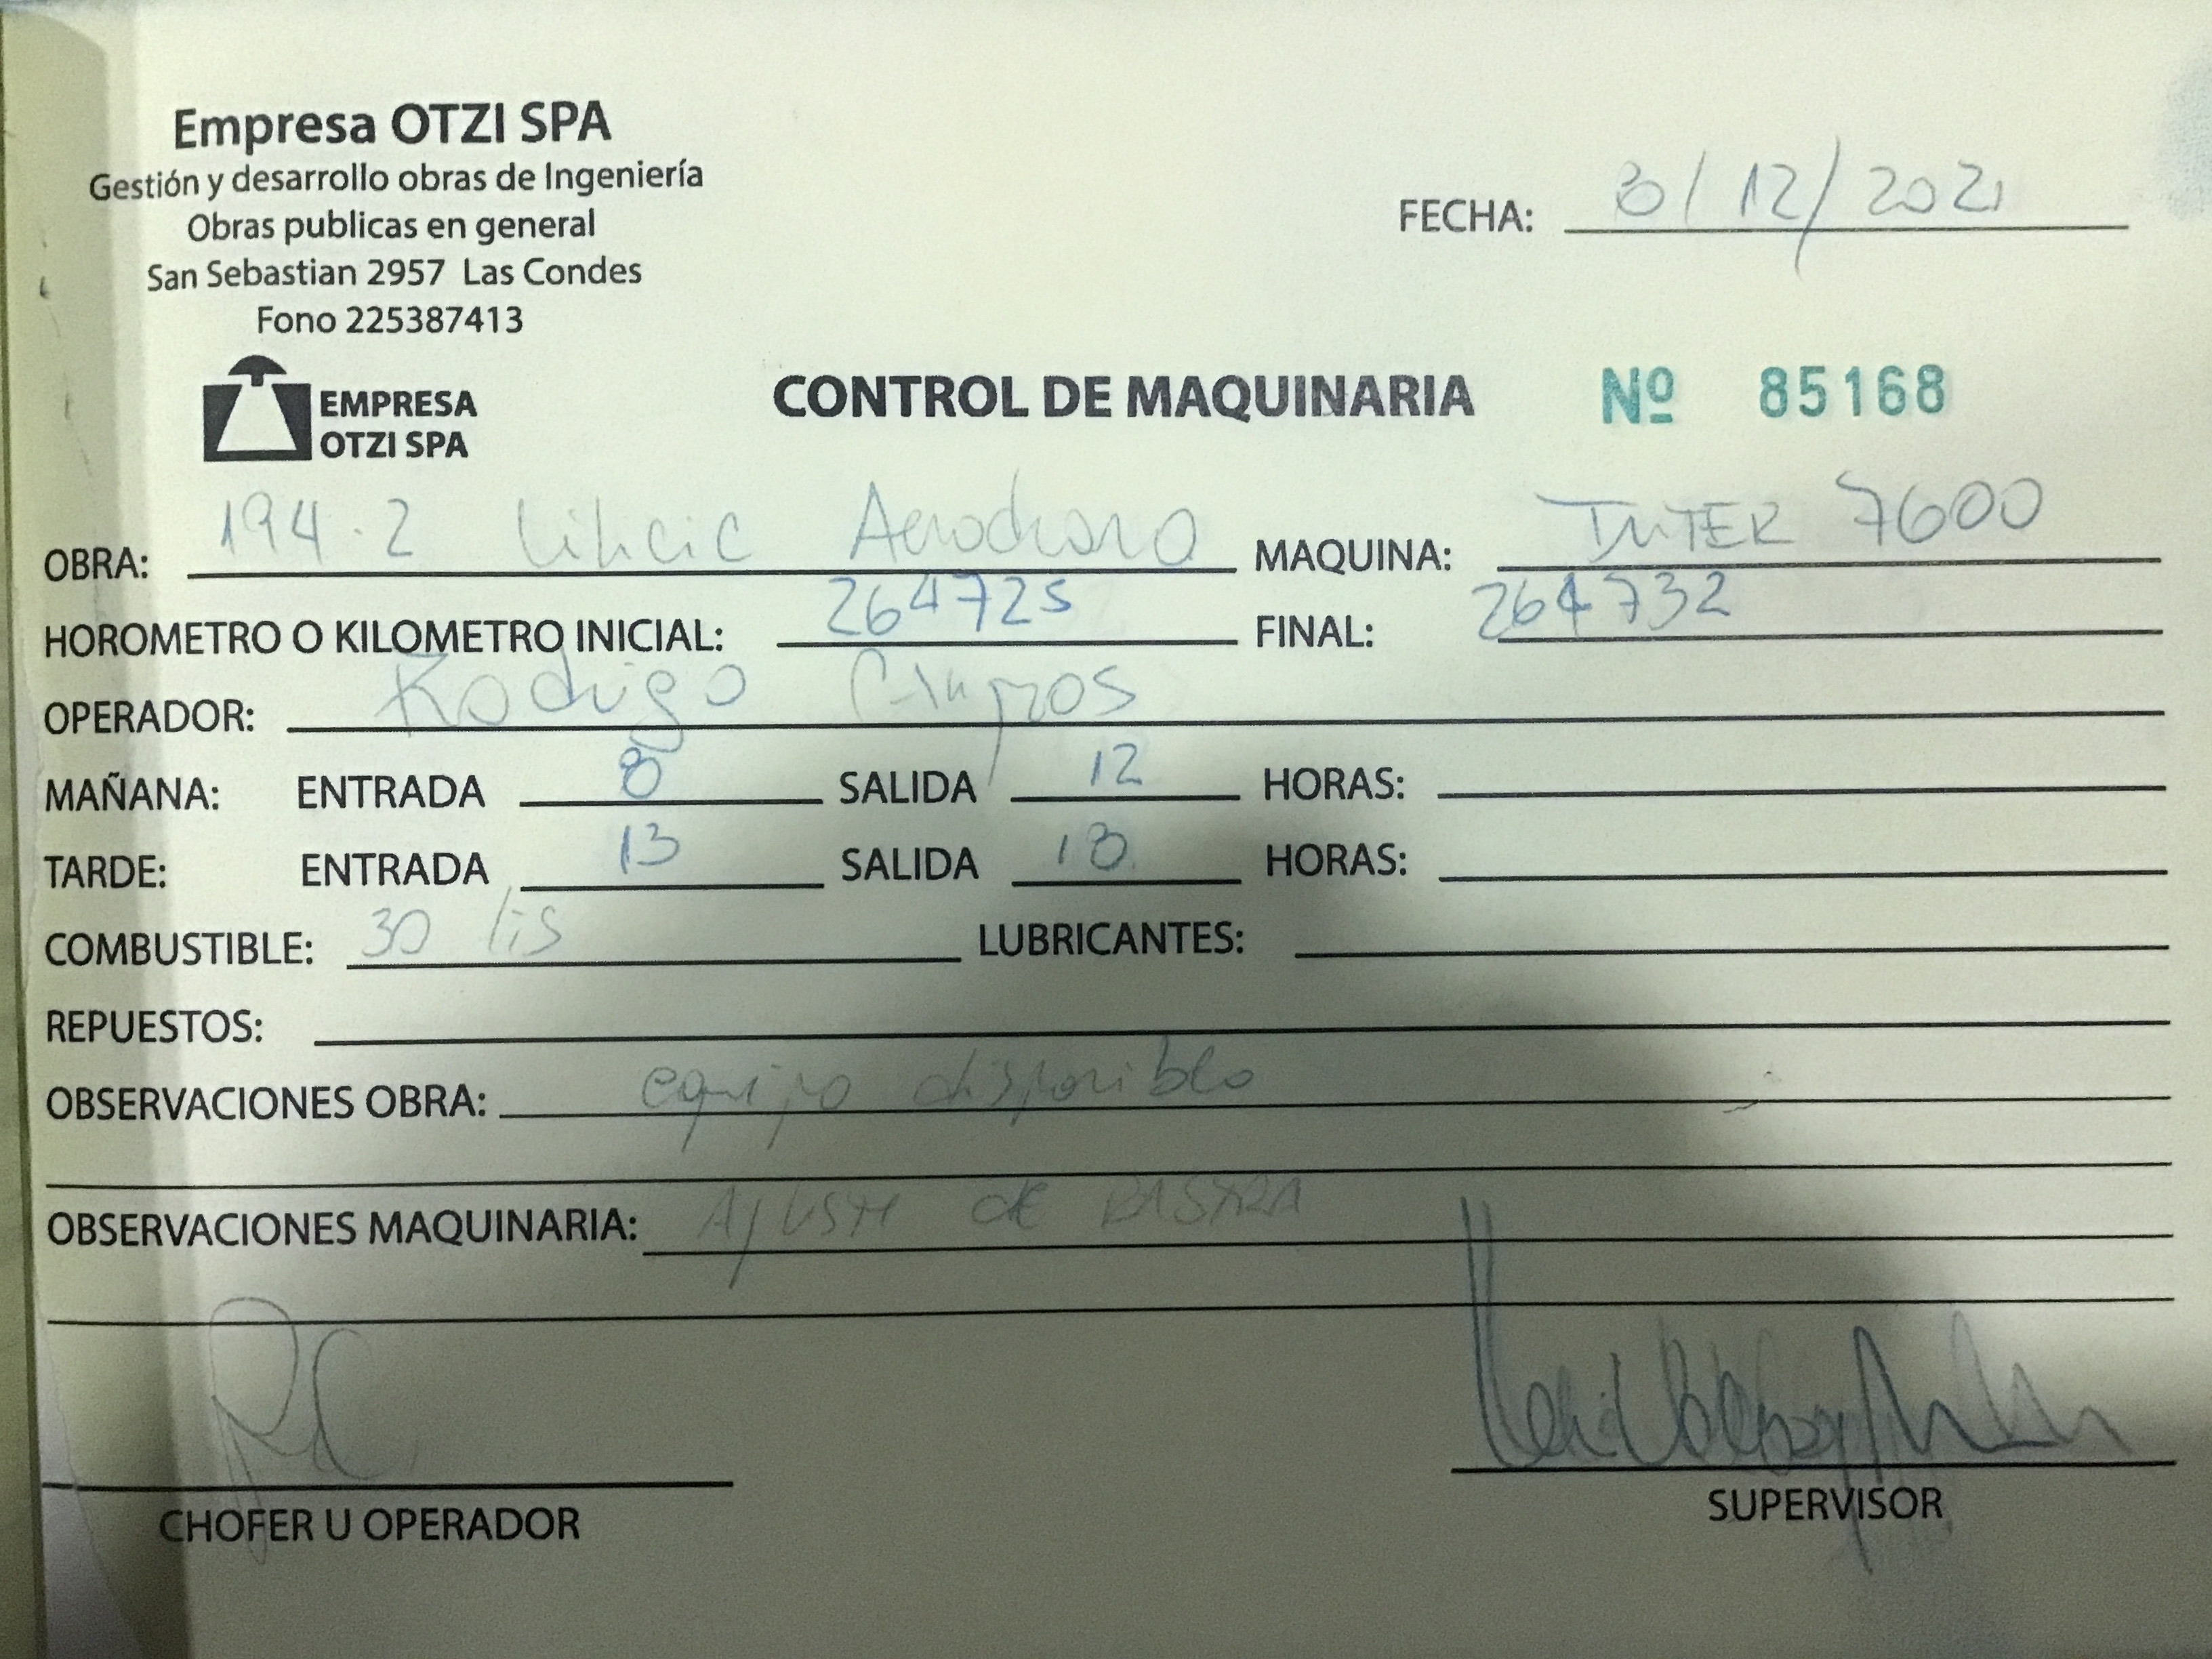 Empresa OTZI SPA
Gestión y desarrollo obras de Ingeniería
Obras publicas en general
San Sebastian 2957 Las Condes
Fono 225387413
FECHA: 8/12/2021
EMPRESA
OTZI SPA
CONTROL DE MAQUINARIA Nº 85168
OBRA: 194.2 Aerodromo MAQUINA: INTER 7600
HOROMETRO O KILOMETRO INICIAL: 264725 FINAL: 264732
OPERADOR: Rodrigo Campos
MAÑANA: ENTRADA 8 SALIDA 12 HORAS:
TARDE: ENTRADA 13 SALIDA 18 HORAS:
COMBUSTIBLE: 30 lts LUBRICANTES:
REPUESTOS:
OBSERVACIONES OBRA: equipo disponible
OBSERVACIONES MAQUINARIA: AJUSTE DE
CHOFER U OPERADOR
SUPERVISOR